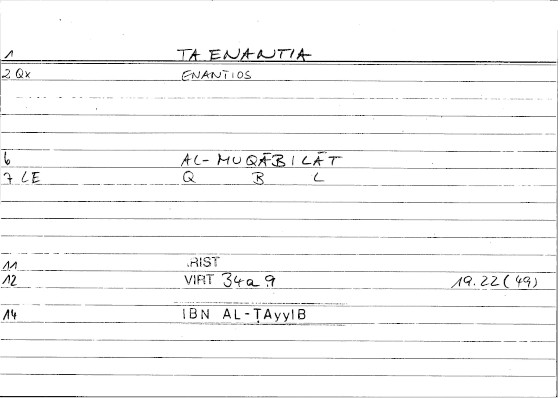 1 TA ENANTIA
2 Qx ENANTIOS
6 AL-MUQĀBILĀT
7 LE Q B L
11 .RIST
12 VIRT 34a9 19.22(49)
14 IBN AL-ṬAyyIB